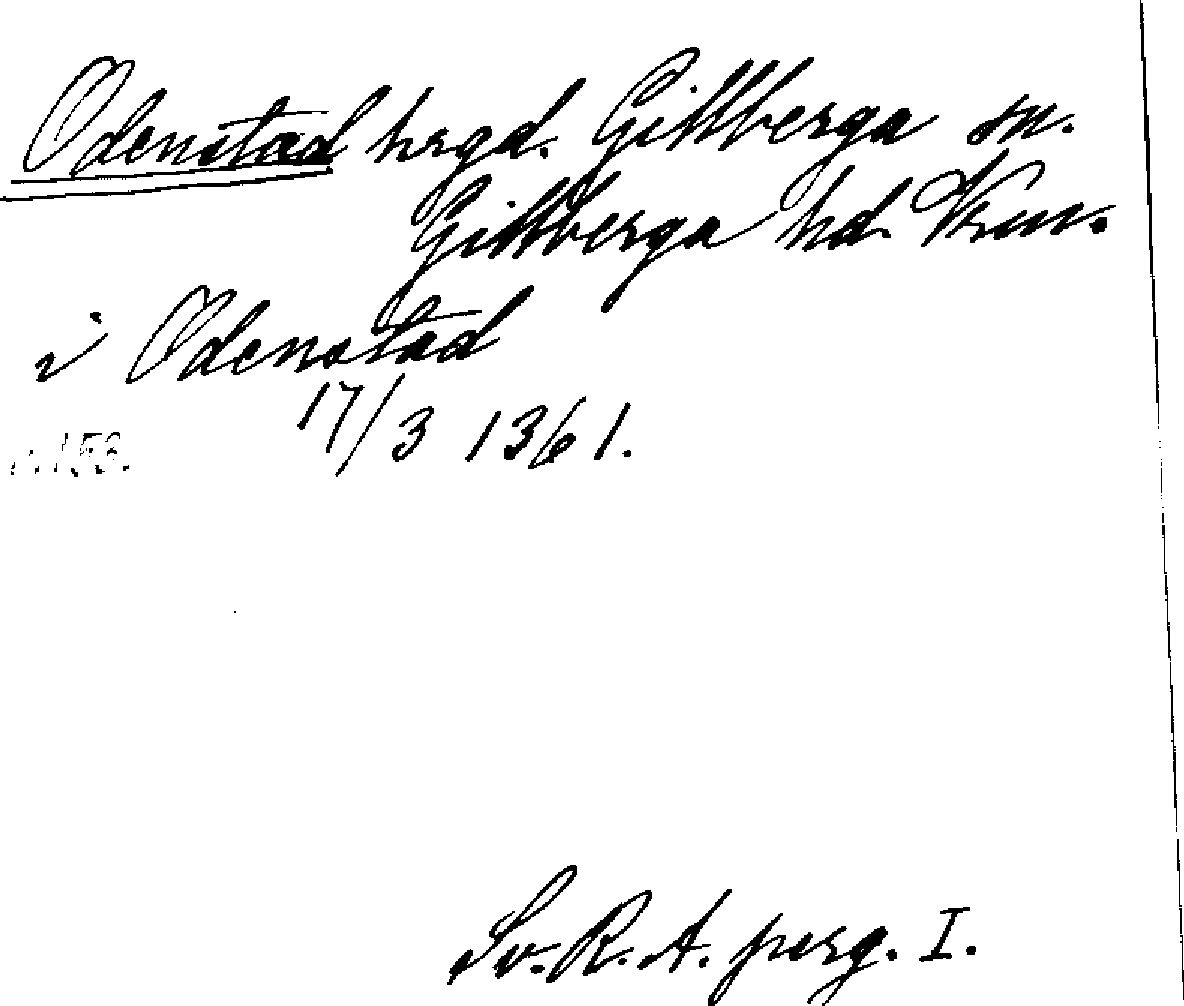 Odenstad hrgd. Gillberga sn.
Gillberga hd. Vrm.
i Odenstad
17/3 1361.
Sv. R. A. perg. I.